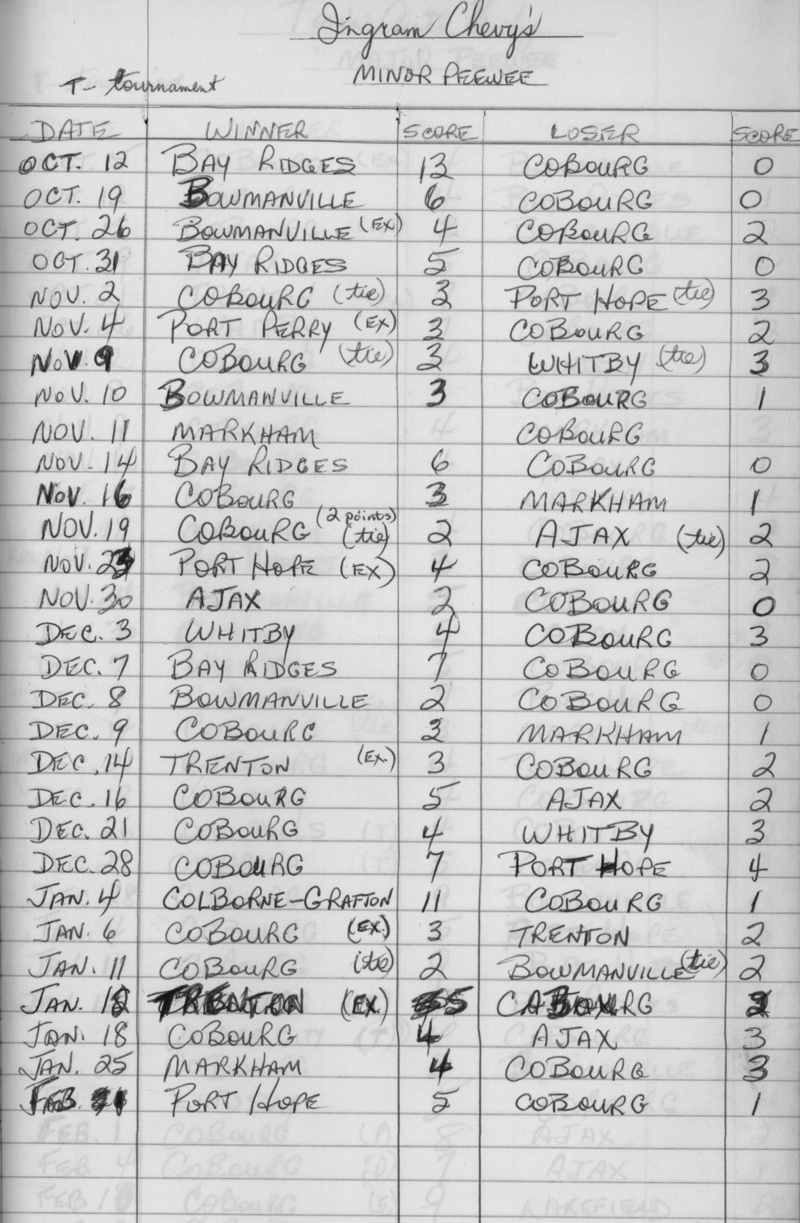 Ingram Chevy's
MINOR PEEWEE
T- tournament
DATE WINNER SCORE LOSER SCORE
OCT. 12 BAY RIDGES 13 COBOURG 0
OCT. 19 BOWMANVILLE 6 COBOURG 0
OCT. 26 BOWMANVILLE (EX) 4 COBOURG 2
OCT. 31 BAY RIDGES 5 COBOURG 0
NOV. 2 COBOURG (tie) 3 PORT HOPE (tie) 3
NOV. 4 PORT PERRY (EX) 3 COBOURG 2
NOV. 9 COBOURG (tie) 3 WHITBY (tie) 3
NOV. 10 BOWMANVILLE 3 COBOURG 1
NOV. 11 MARKHAM COBOURG
NOV. 14 BAY RIDGES 6 COBOURG 0
NOV. 16 COBOURG 3 MARKHAM 1
NOV. 19 COBOURG (2 points) (tie) 2 AJAX (tie) 2
NOV. 23 PORT HOPE (EX) 4 COBOURG 2
NOV. 30 AJAX 2 COBOURG 0
DEC. 3 WHITBY 4 COBOURG 3
DEC. 7 BAY RIDGES 7 COBOURG 0
DEC. 8 BOWMANVILLE 2 COBOURG 0
DEC. 9 COBOURG 3 MARKHAM 1
DEC. 14 TRENTON (EX.) 3 COBOURG 2
DEC. 16 COBOURG 5 AJAX 2
DEC. 21 COBOURG 4 WHITBY 3
DEC. 28 COBOURG 7 PORT HOPE 4
JAN. 4 COLBORNE-GRAFTON 11 COBOURG 1
JAN. 6 COBOURG (EX.) 3 TRENTON 2
JAN. 11 COBOURG (tie) 2 BOWMANVILLE (tie) 2
JAN. TRENTON (EX) 5 COBOURG
JAN. 18 COBOURG 4 AJAX 3
JAN. 25 MARKHAM 4 COBOURG 3
FEB. PORT HOPE 5 COBOURG 1